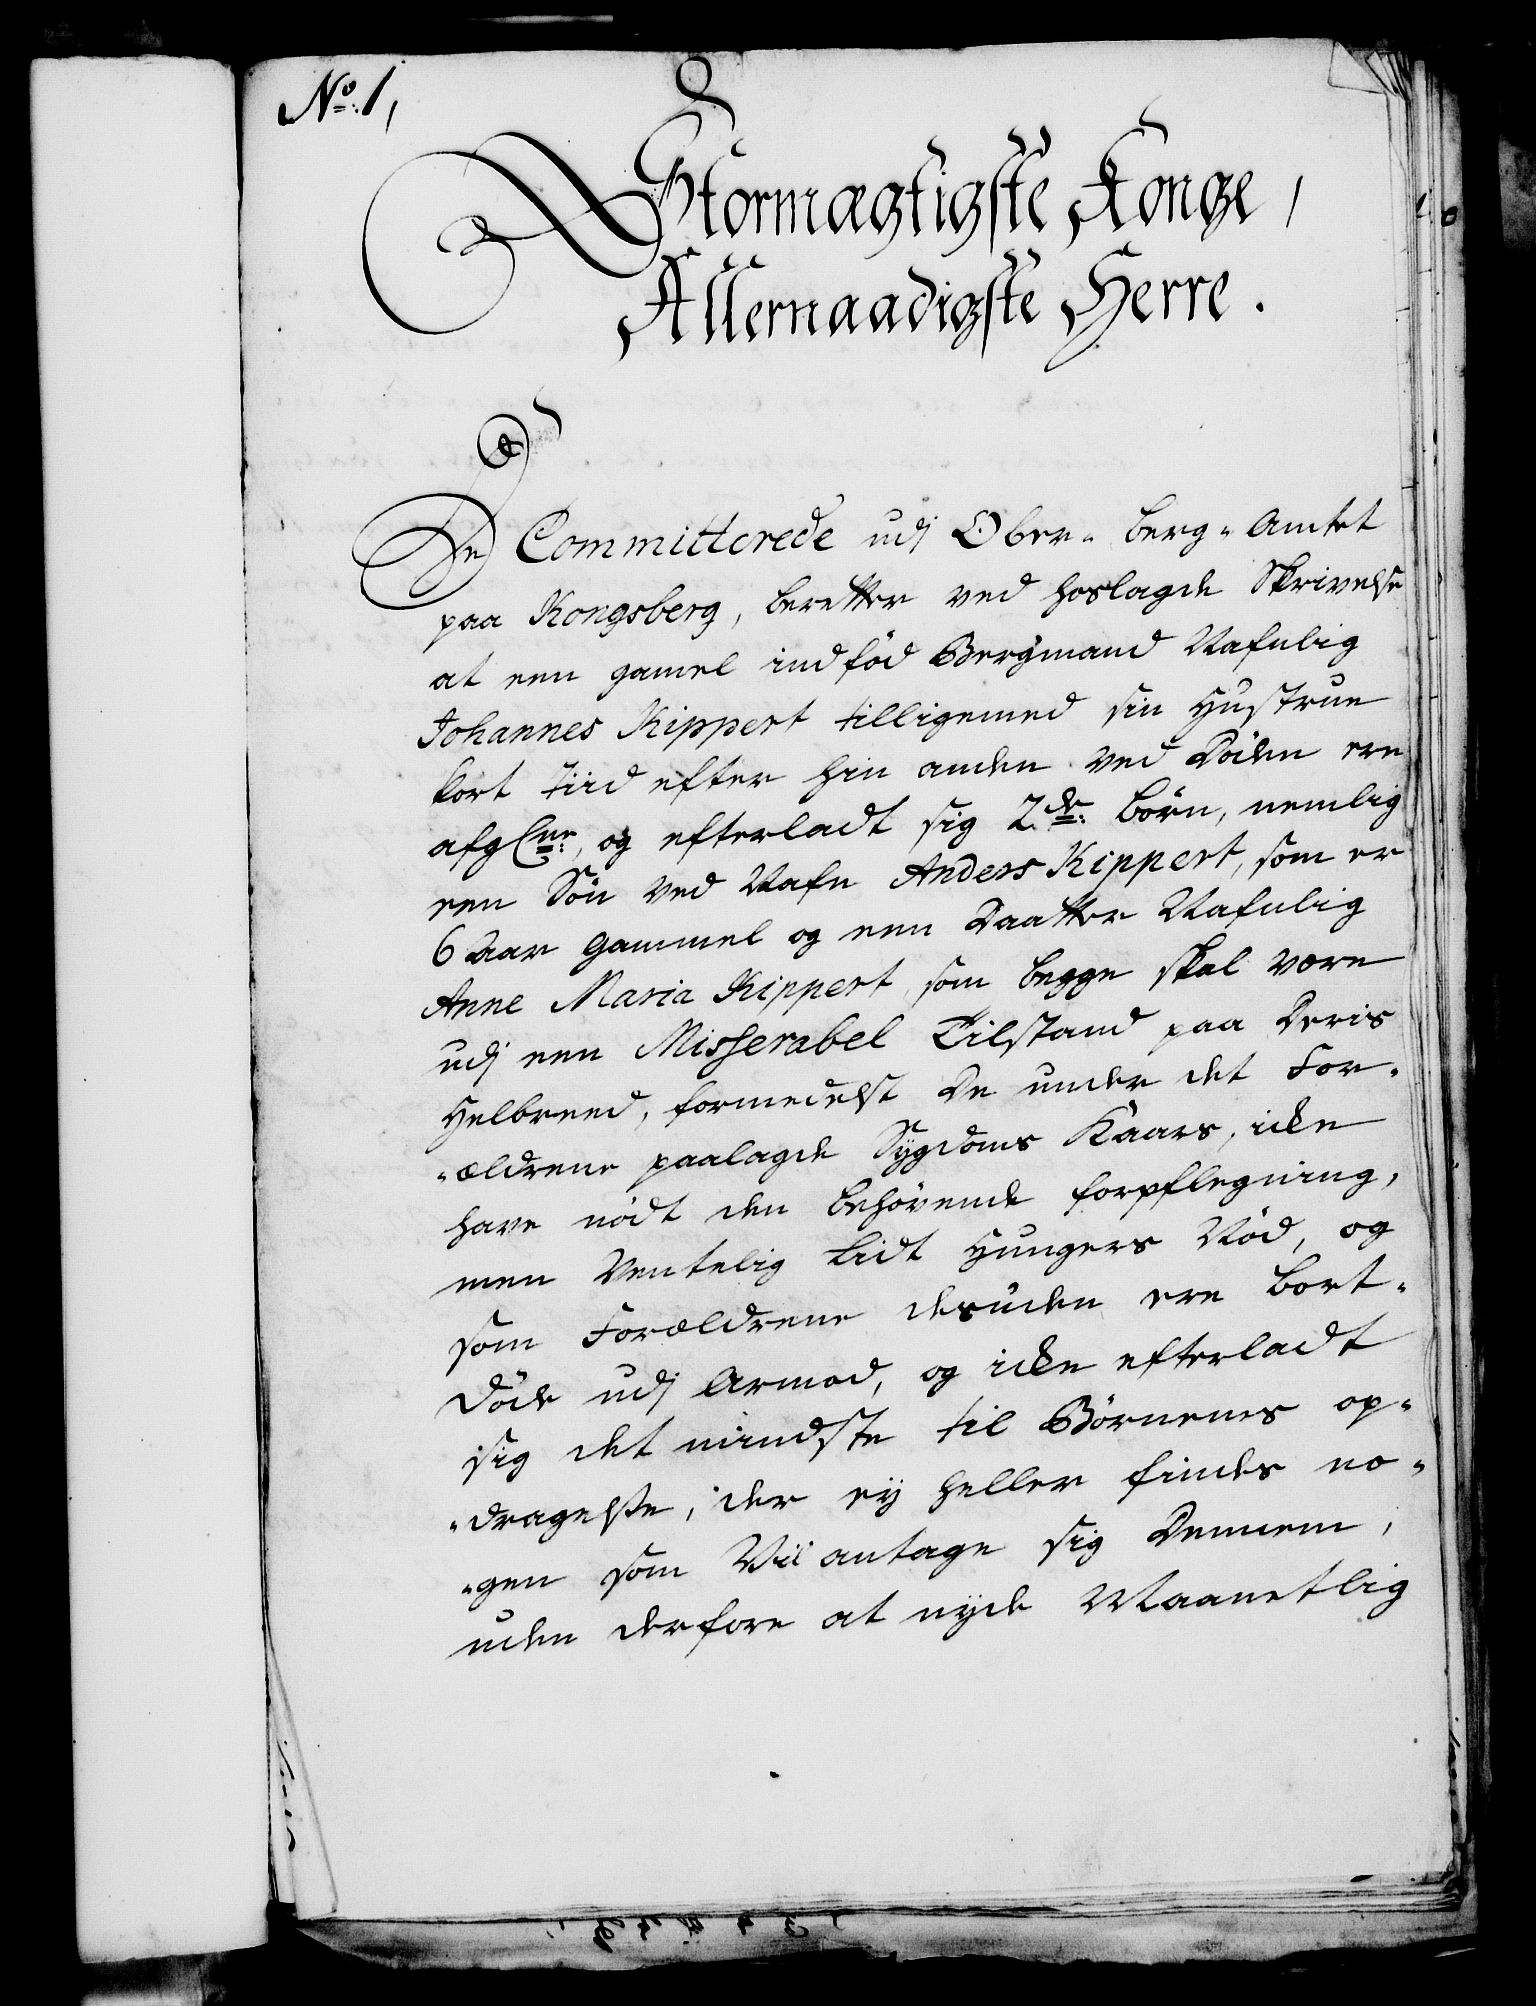 No: 1,
Stormægtigste Konge,
Allernaadigste Herre.
De Committerede udj Ober- Berg-Amtet
paa Kongsberg, beretter ved hoslagde Skrivelse
at een gamel indfød Bergmand Nafnlig
Johannes Kippert tilligemed sin Hustrue
kort tiid efter hin anden ved Døden ere
afgne:, og efterladt sig 2de: børn, nemlig
een Søn ved Nafn Anders Kippert, som er
6 Aar gammel og een Daatter Nafnlig
Anne Maria Kippert som begge skal være
udj een Misserabel Tilstand paa Deris
Helbreed, formedelst De under det For-
-ældrene paalagde Sygdoms Kaars, icke
have nødt den behøvende forpflegning,
men Ventelig Lidt Hungers Nød, og
som Forældrene desuden ere bort-
døde udj Armod, og icke efterladt
sig det mindste til Børnenes op-
-dragelse, der ey heller findes no-
-gen som Vil antage sig Dennem,
uden derfore at nyde Maanetlig